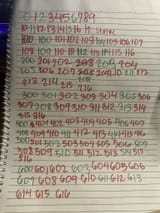 0 1 2 3 4 5 6 7 8 9
10 11 12 13 14 15 16
100 101 102 103 104 105 106 107
108 109 110 111 112 114 115 116
200 201 202 203 204
205 206 207 208 210 211 212
213 214 215 216
300 301 302 303 304 305 306
307 308 309 310 311 312 313 314
315 316
400 401 402 403 404 405 406 407
408 409 410 411 412 413 414 415 416
500 501 502 503 504 505 506 507
508 509 510 511 512 513 514 515
516
600 601 602 603 604 605 606
607 608 609 610 611 612 613
614 615 616